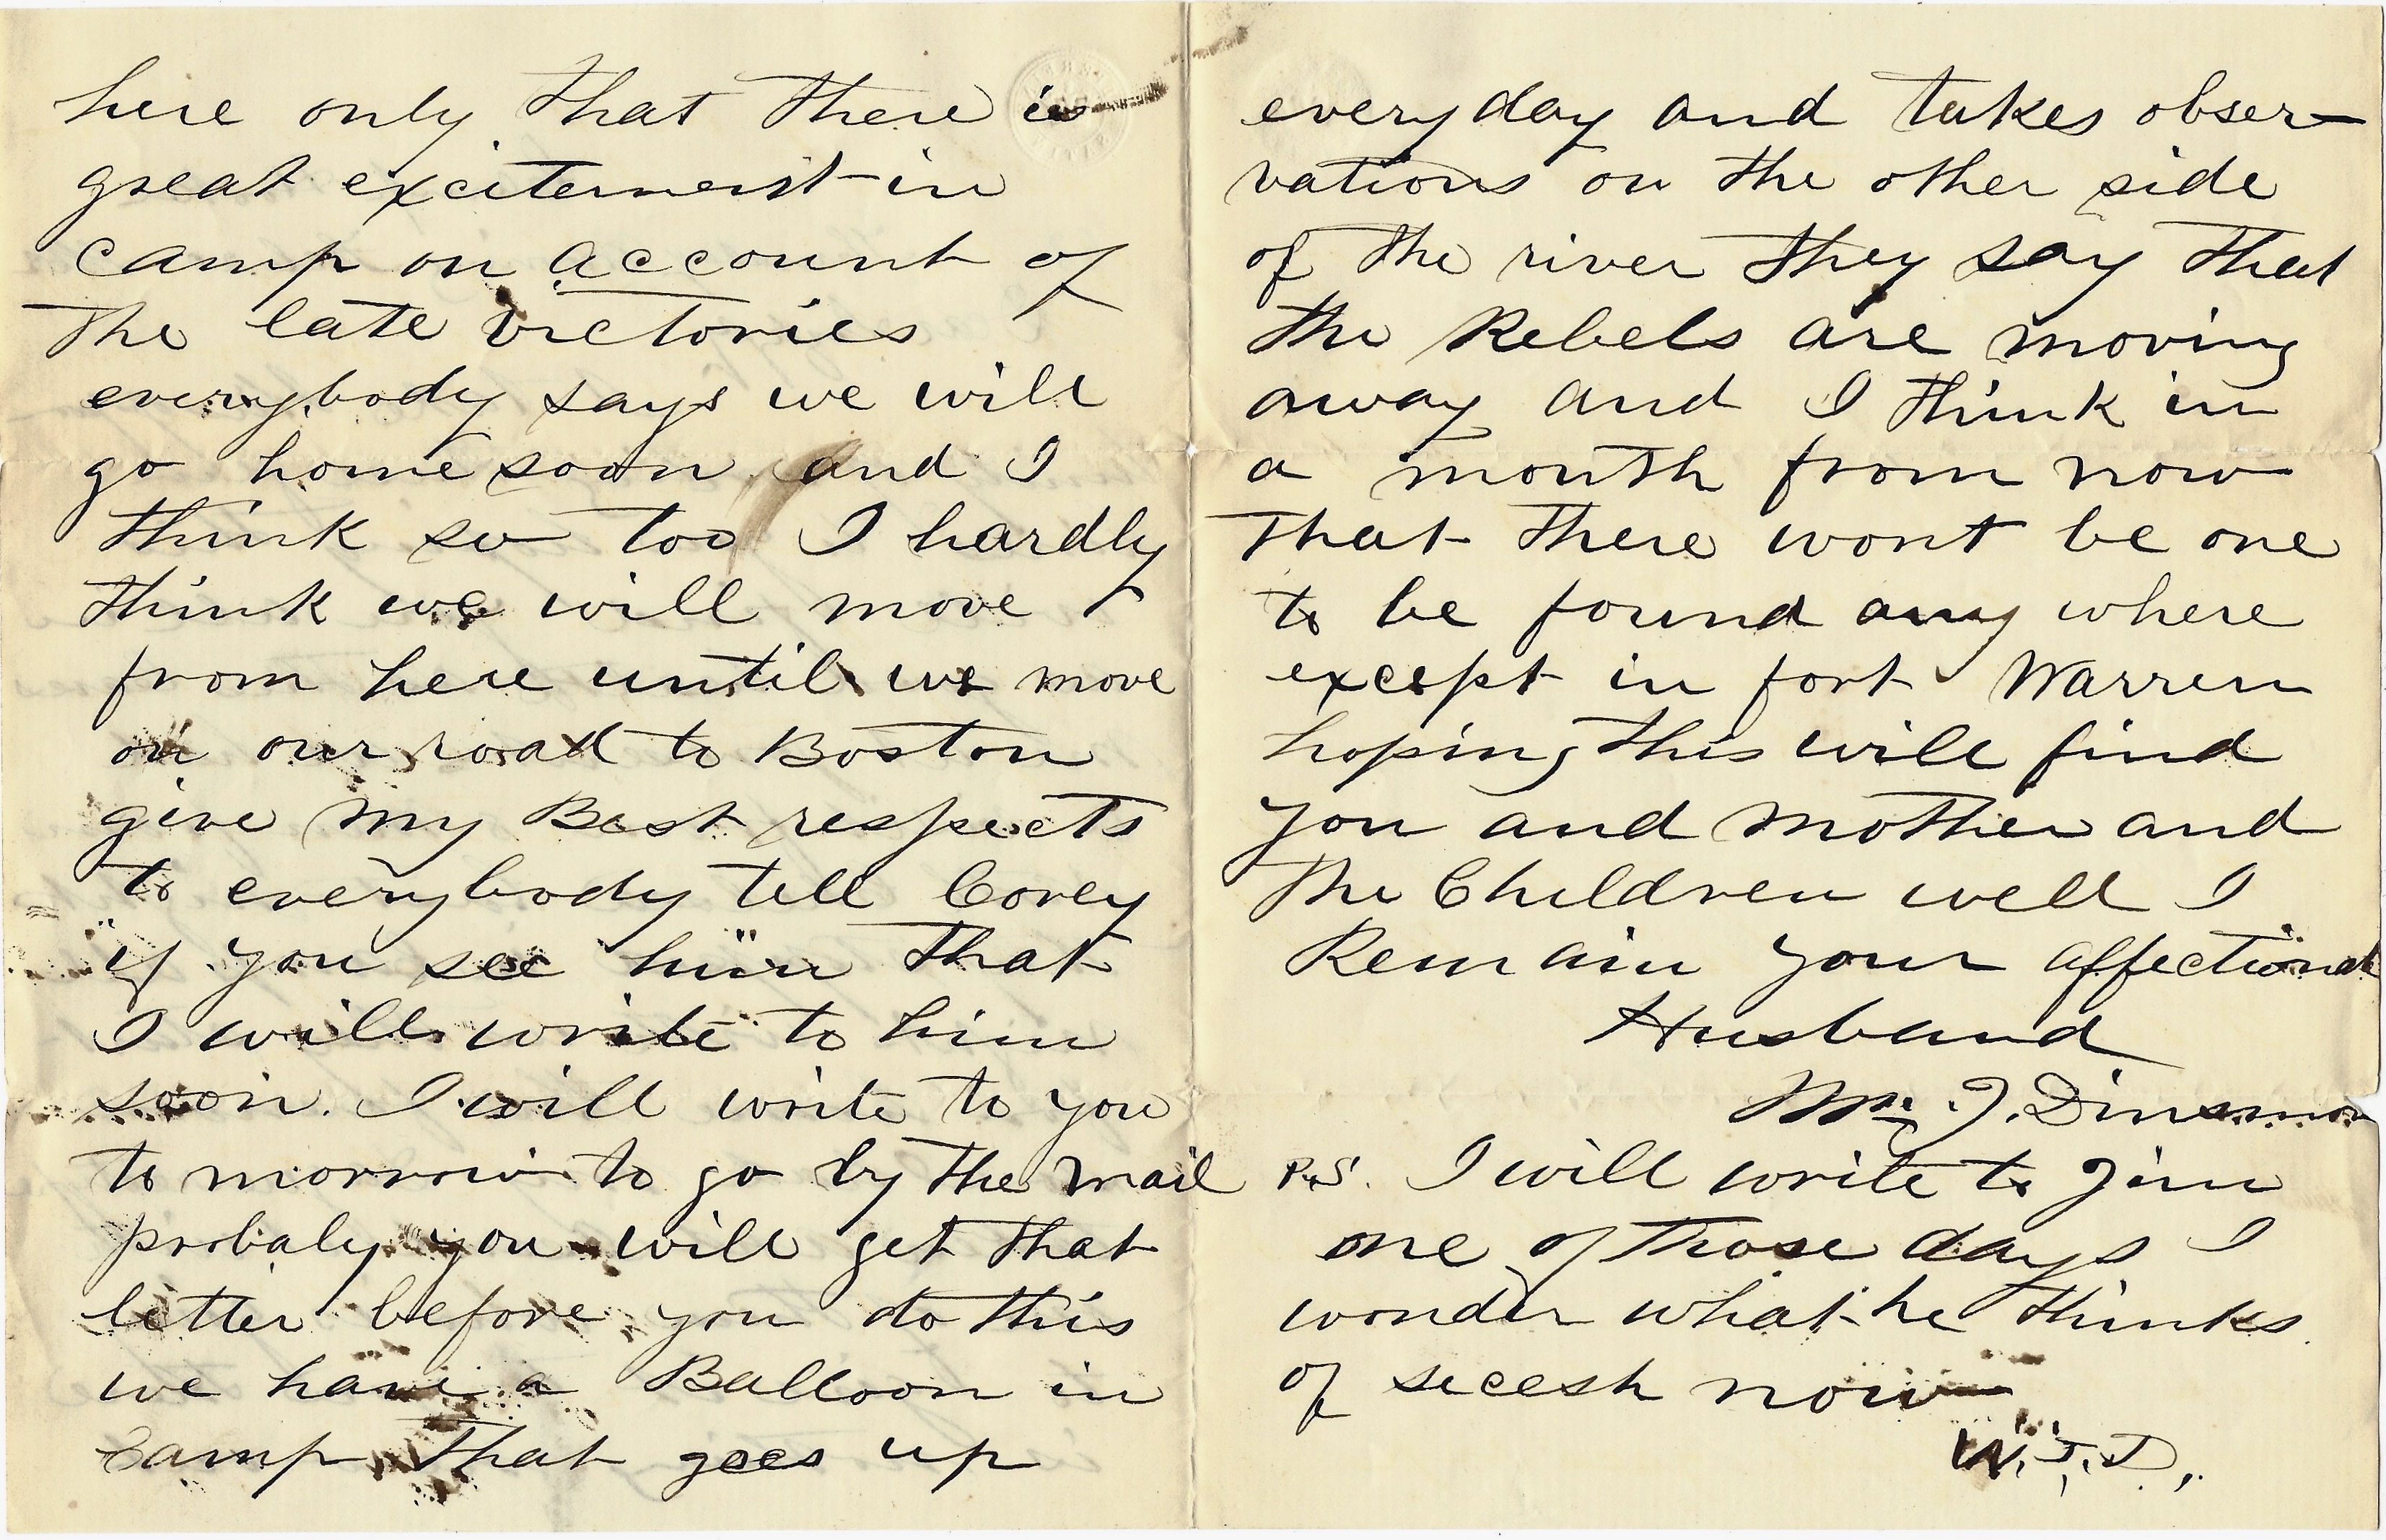 here only that there is
great excitement in
camp on account of
the late victories
everybody says we will
go home soon and I
think so too I hardly
think we will move
from here until we move
on our road to Boston
give my Best respects
to everybody tell Corey
"if you see him" that
I will write to him
soon. I will write to you
to morrow to go by the mail
probaly you will get that
letter before you do this
we have a Balloon in
camp that goes up
everyday and takes obser-
vations on the other side
of the river they say that
the Rebels are moving
away and I think in
a month from now
that there wont be one
to be found any where
except in fort Warren
hoping this will find
you and mother and
the Children well I
Remain your affectionat
Husband
Wm. J. Dinsmor
P.S. I will write to Jim
one of those days I
wonder what he thinks
of secesh now
W.J.D.